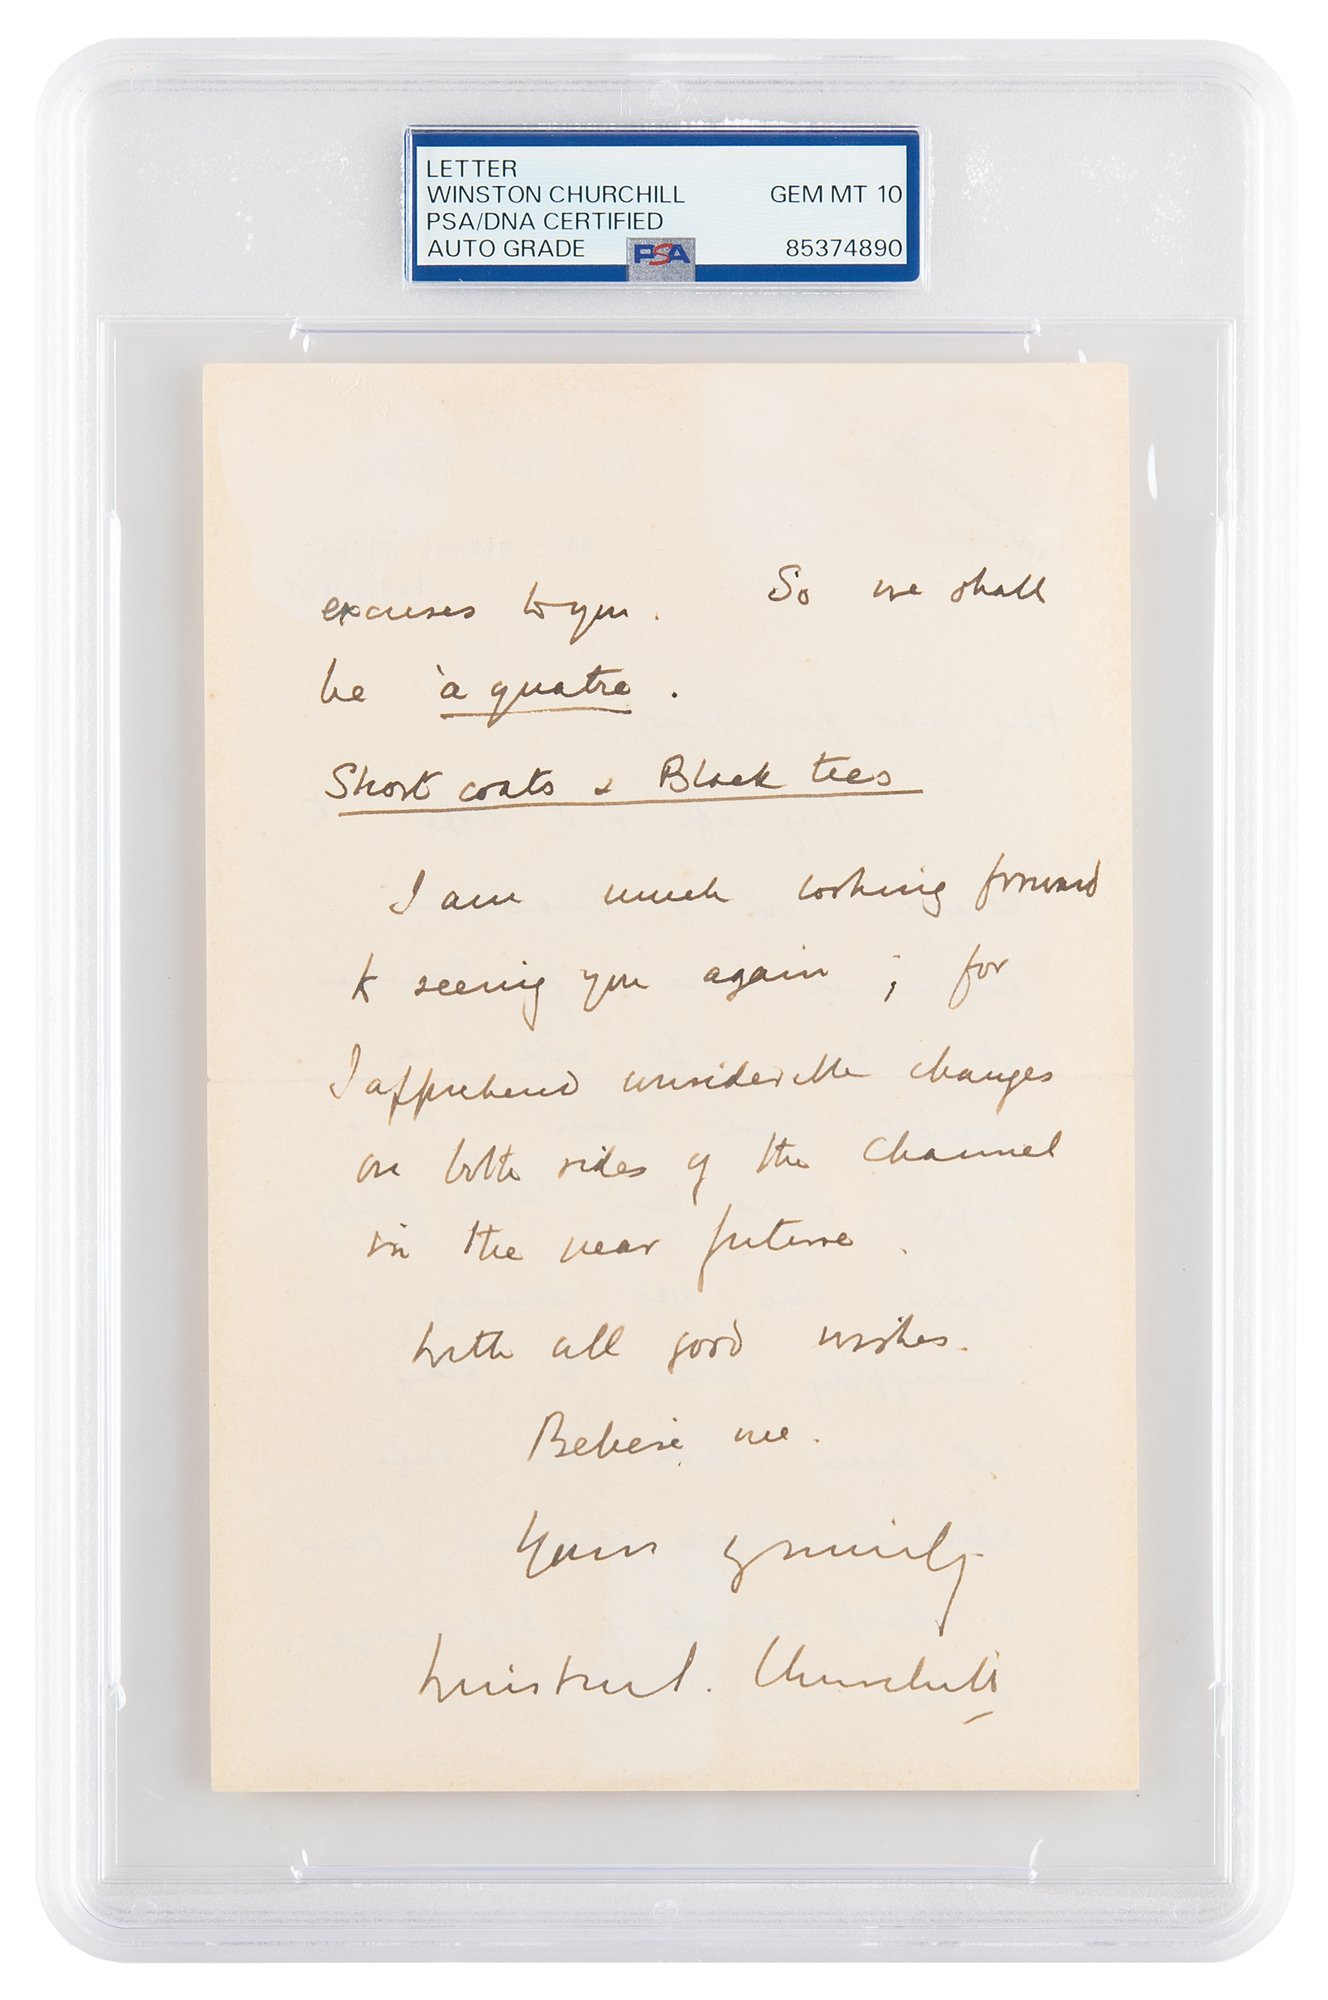 LETTER
WINSTON CHURCHILL GEM MT 10
PSA/DNA CERTIFIED
AUTO GRADE PSA 85374890
excuses to you. So we shall
be à quatre.
Short coats & Black ties
I am much looking forward
to seeing you again; for
I apprehend considerable changes
on both sides of the Channel
in the near future.
With all good wishes.
Believe me.
Yours sincerely
Winston S. Churchill